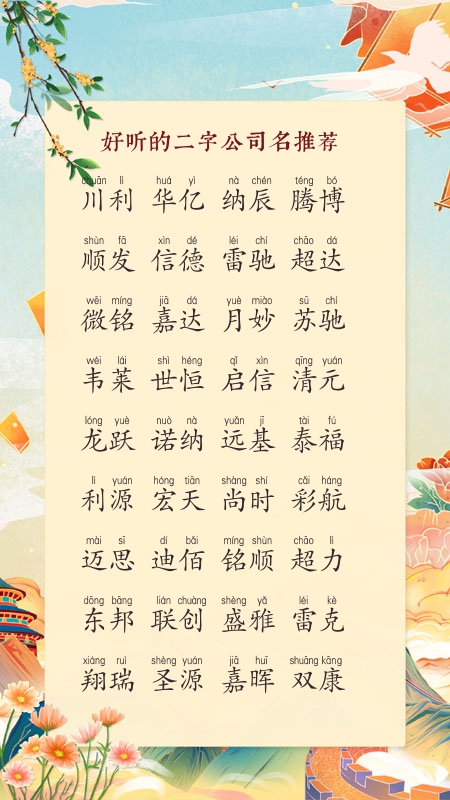 好听的二字公司名推荐
chuān lì huá yì nà chén téng bó
川利 华亿 纳辰 腾博
shùn fā xìn dé léi chí chāo dá
顺发 信德 雷驰 超达
wēi míng jiā dá yuè miào sū chí
微铭 嘉达 月妙 苏驰
wéi lái shì héng qǐ xìn qīng yuán
韦莱 世恒 启信 清元
lóng yuè nuò nà yuǎn jī tài fú
龙跃 诺纳 远基 泰福
lì yuán hóng tiān shàng shí cǎi háng
利源 宏天 尚时 彩航
mài sī dí bǎi míng shùn chāo lì
迈思 迪佰 铭顺 超力
dōng bāng lián chuàng shèng yǎ léi kè
东邦 联创 盛雅 雷克
xiáng ruì shèng yuán jiā huī shuāng kāng
翔瑞 圣源 嘉晖 双康